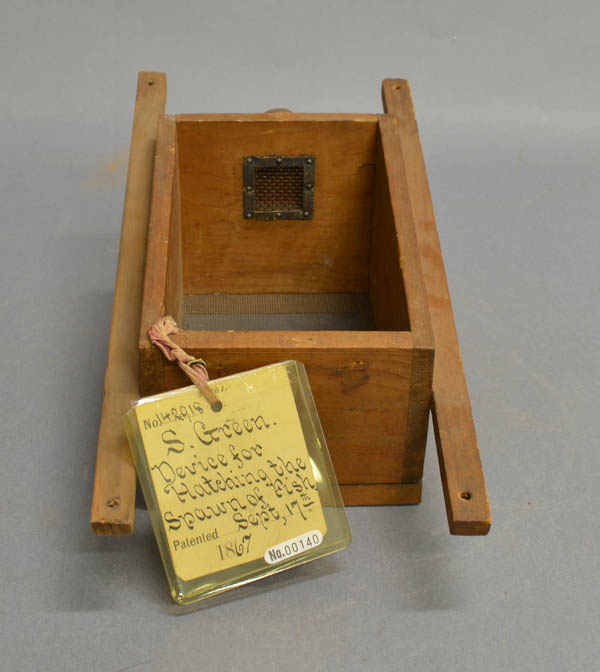 S. Green.
Device for
Hatching the
Spawn of Fish,
Sept, 17th
Patented
1867
No.00140